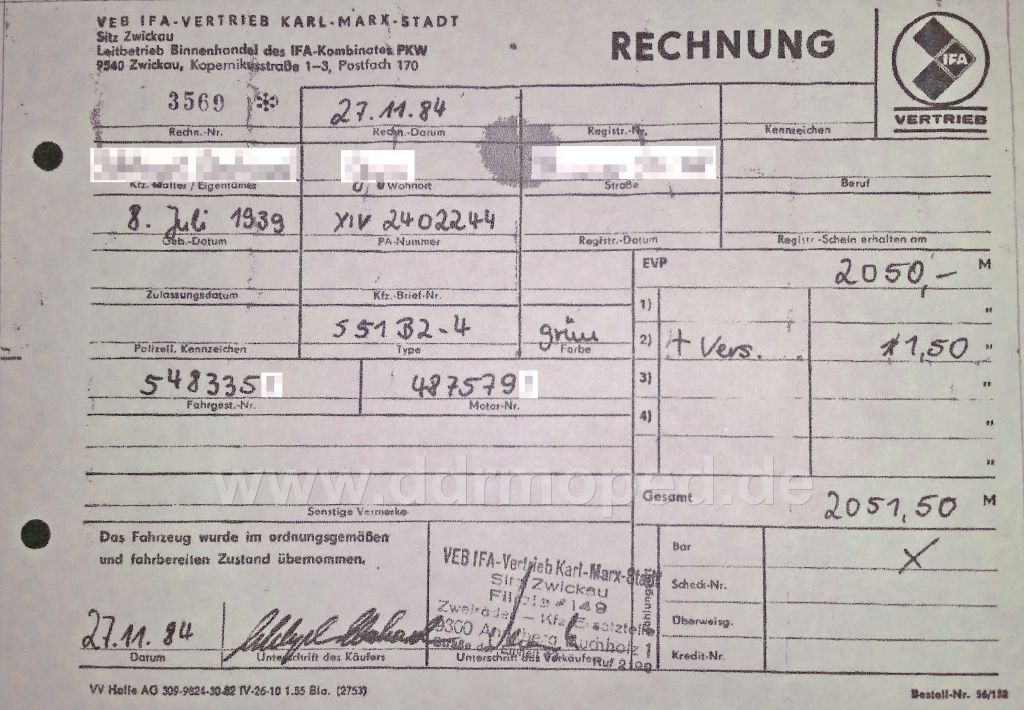 VEB IFA-VERTRIEB KARL-MARX-STADT
Sitz Zwickau
Leitbetrieb Binnenhandel des IFA-Kombinates PKW
9540 Zwickau, Kopernikusstraße 1–3, Postfach 170
RECHNUNG
IFA
VERTRIEB
3569 ✻
27.11.84
Rechn.-Nr. Rechn.-Datum Registr.-Nr. Kennzeichen
Kfz.-Halter / Eigentümer Wohnort Straße Beruf
8. Juli 1939 XIV 2402244
Geb.-Datum PA-Nummer Registr.-Datum Registr.-Schein erhalten am
EVP 2050,– M
Zulassungsdatum Kfz.-Brief-Nr.
1) "
S51 B2-4 grün
Polizeil. Kennzeichen Type Farbe
2) + Vers. 1,50 "
548335 487579
Fahrgest.-Nr. Motor-Nr.
3) "
4) "
"
www.ddrmoped.de
Gesamt 2051,50 M
Sonstige Vermerke
Das Fahrzeug wurde im ordnungsgemäßen
und fahrbereiten Zustand übernommen.
Bar X
Scheck-Nr.
Überweisg.
Kredit-Nr.
VEB IFA-Vertrieb Karl-Marx-Stadt
Sitz Zwickau
Filiale 149
Zweiräder – Kfz-Ersatzteile
9300 Annaberg-Buchholz 1
Straße der Einheit
Ruf 2199
27.11.84
Datum Unterschrift des Käufers Unterschrift des Verkäufers
VV Halle AG 309-9824-30-82 IV-26-10 1.55 Bla. (2753)
Bestell-Nr. 56/152